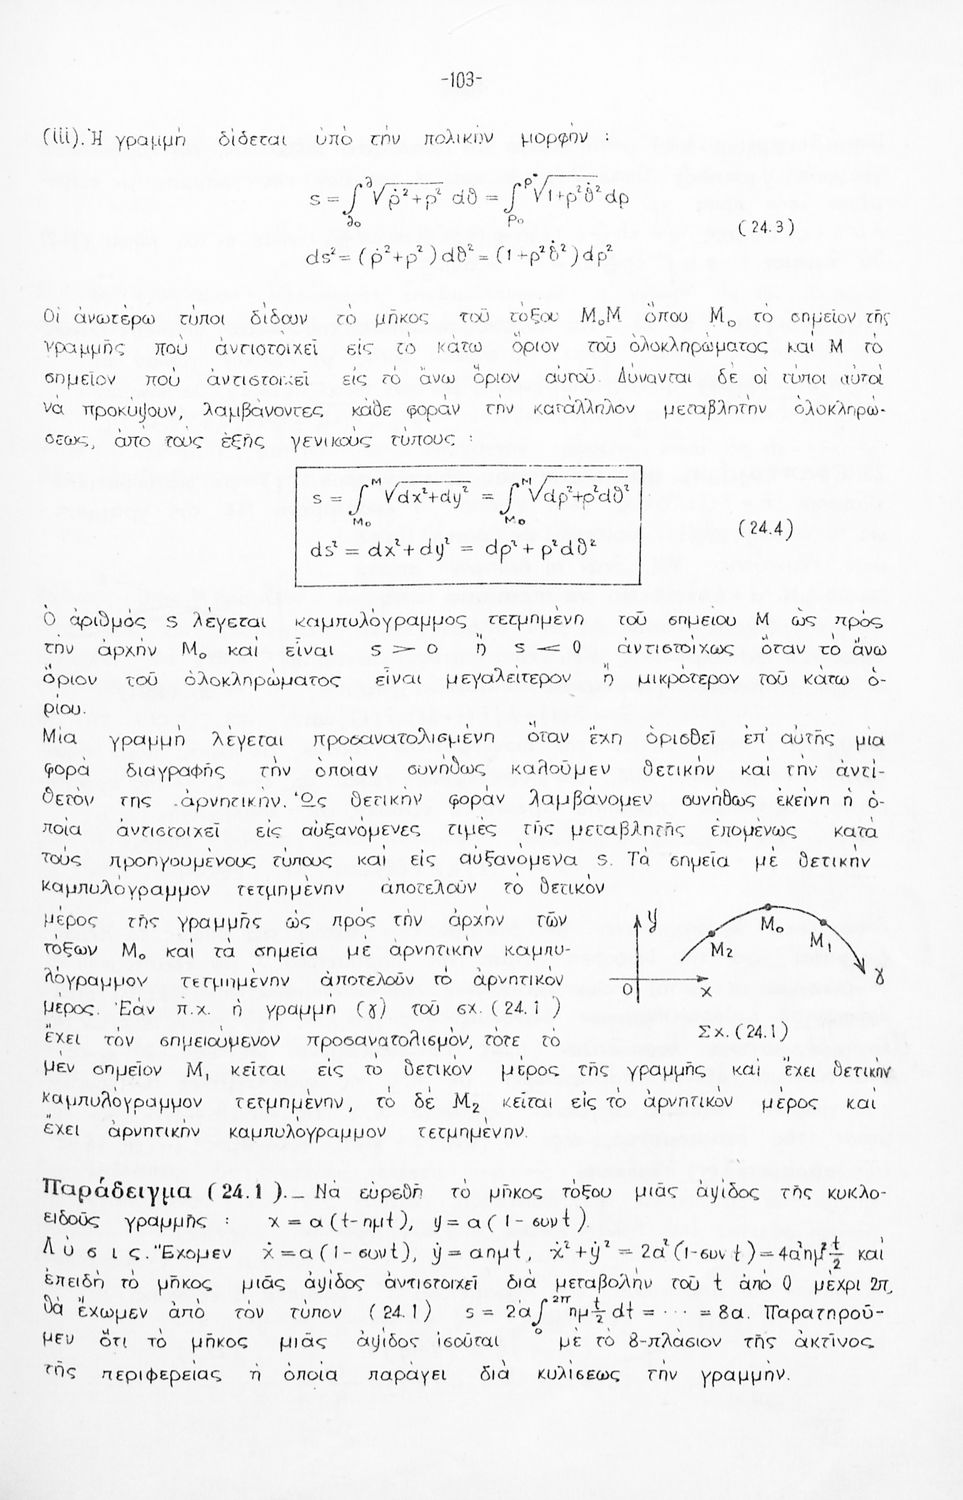 -103-
(iii). Ἡ γραμμὴ δίδεται ὑπὸ τὴν πολικὴν μορφὴν :
s = ∫_{ϑ₀}^{ϑ} √(ρ̇²+ρ²) dϑ = ∫_{ρ₀}^{ρ} √(1+ρ²ϑ̇²) dρ
(24.3)
ds² = (ρ̇²+ρ²)dϑ² = (1+ρ²ϑ̇²)dρ²
Οἱ ἀνωτέρω τύποι δίδουν τὸ μῆκος τοῦ τόξου M₀M ὅπου M₀ τὸ σημεῖον τῆς
γραμμῆς ποὺ ἀντιστοιχεῖ εἰς τὸ κάτω ὅριον τοῦ ὁλοκληρώματος καὶ M τὸ
σημεῖον ποὺ ἀντιστοιχεῖ εἰς τὸ ἄνω ὅριον αὐτοῦ. Δύνανται δὲ οἱ τύποι αὐτοὶ
νὰ προκύψουν, λαμβάνοντες κάθε φορὰν τὴν κατάλληλον μεταβλητὴν ὁλοκληρώ-
σεως, ἀπὸ τοὺς ἑξῆς γενικοὺς τύπους :
s = ∫_{M₀}^{M} √(dx²+dy²) = ∫_{M₀}^{M} √(dρ²+ρ²dϑ²)
(24.4)
ds² = dx²+dy² = dρ²+ρ²dϑ²
Ὁ ἀριθμὸς s λέγεται καμπυλόγραμμος τετμημένη τοῦ σημείου M ὡς πρὸς
τὴν ἀρχὴν M₀ καὶ εἶναι s > 0 ἢ s < 0 ἀντιστοίχως ὅταν τὸ ἄνω
ὅριον τοῦ ὁλοκληρώματος εἶναι μεγαλείτερον ἢ μικρότερον τοῦ κάτω ὁ-
ρίου.
Μία γραμμὴ λέγεται προσανατολισμένη ὅταν ἔχῃ ὁρισθεῖ ἐπ' αὐτῆς μία
φορὰ διαγραφῆς τὴν ὁποίαν συνήθως καλοῦμεν θετικὴν καὶ τὴν ἀντί-
θετόν της ἀρνητικήν. Ὡς θετικὴν φορὰν λαμβάνομεν συνήθως ἐκείνη ἡ ὁ-
ποία ἀντιστοιχεῖ εἰς αὐξανόμενες τιμὲς τῆς μεταβλητῆς ἑπομένως κατὰ
τοὺς προηγουμένους τύπους καὶ εἰς αὐξανόμενα s. Τὰ σημεῖα μὲ θετικὴν
καμπυλόγραμμον τετμημένην ἀποτελοῦν τὸ θετικὸν
μέρος τῆς γραμμῆς ὡς πρὸς τὴν ἀρχὴν τῶν
τόξων M₀ καὶ τὰ σημεῖα μὲ ἀρνητικὴν καμπυ-
λόγραμμον τετμημένην ἀποτελοῦν τὸ ἀρνητικὸν
μέρος. Ἐὰν π.χ. ἡ γραμμὴ (γ) τοῦ σχ. (24.1)
ἔχει τὸν σημειούμενον προσανατολισμὸν, τότε τὸ
y M₀ M₂ M₁ γ O x
Σχ. (24.1)
μὲν σημεῖον M₁ κεῖται εἰς τὸ θετικὸν μέρος τῆς γραμμῆς καὶ ἔχει θετικὴν
καμπυλόγραμμον τετμημένην, τὸ δὲ M₂ κεῖται εἰς τὸ ἀρνητικὸν μέρος καὶ
ἔχει ἀρνητικὴν καμπυλόγραμμον τετμημένην.
Παράδειγμα (24.1)._ Νὰ εὑρεθῇ τὸ μῆκος τόξου μιᾶς ἁψῖδος τῆς κυκλο-
ειδοῦς γραμμῆς : x = α(t-ημt), y = α(1-συνt).
Λύσις. Ἔχομεν ẋ = α(1-συνt), ẏ = αημt, ẋ²+ẏ² = 2α²(1-συνt) = 4α²ημ² t/2 καὶ
ἐπειδὴ τὸ μῆκος μιᾶς ἁψῖδος ἀντιστοιχεῖ διὰ μεταβολὴν τοῦ t ἀπὸ 0 μέχρι 2π,
θὰ ἔχωμεν ἀπὸ τὸν τύπον (24.1) s = 2α∫_{0}^{2π} ημ t/2 dt = ··· = 8α. Παρατηροῦ-
μεν ὅτι τὸ μῆκος μιᾶς ἁψῖδος ἰσοῦται μὲ τὸ 8-πλάσιον τῆς ἀκτῖνος
τῆς περιφερείας ἡ ὁποία παράγει διὰ κυλίσεως τὴν γραμμήν.